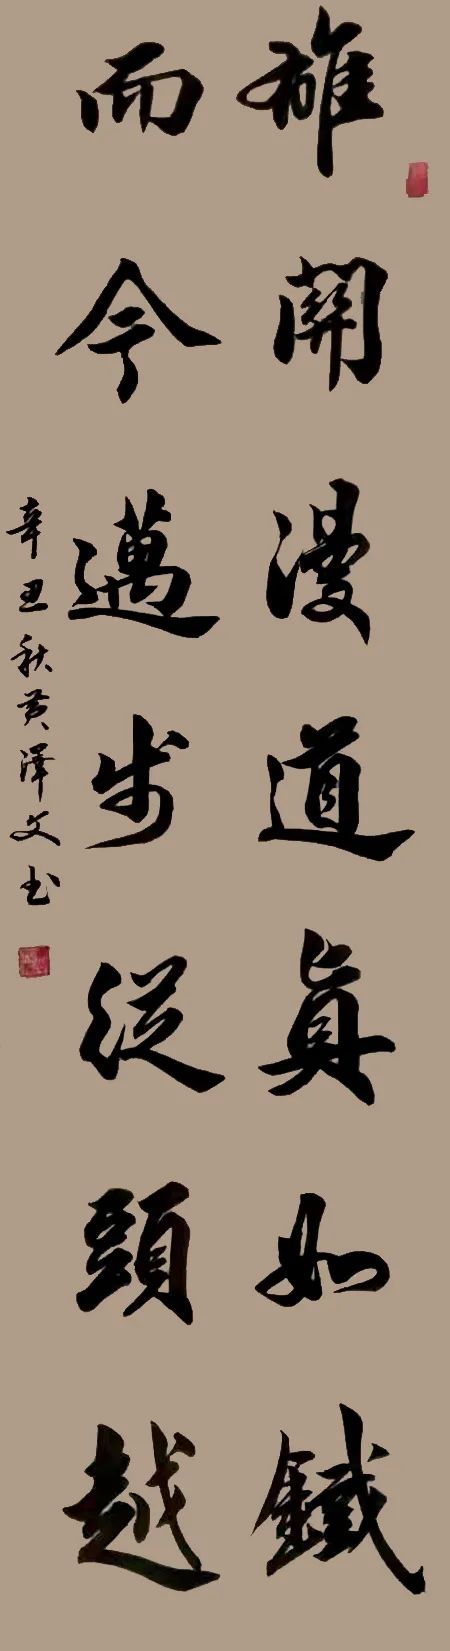 雄關漫道真如鐵
而今邁步從頭越
辛丑秋黄澤文书